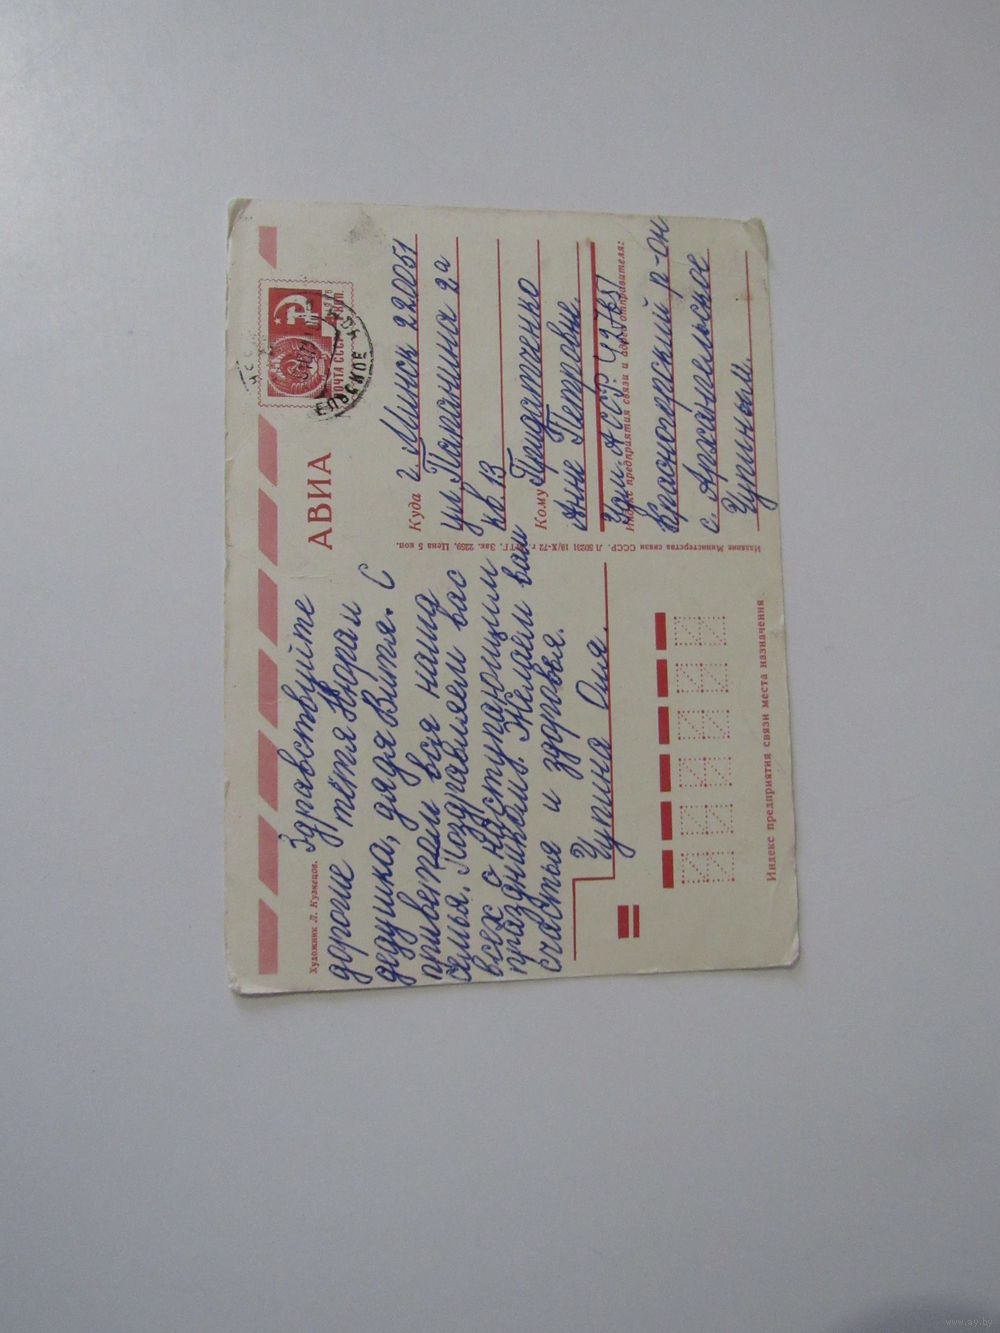 Художник Л. Кузнецов.
Здравствуйте
дорогие тётя Нюра и
дедушка, дядя Витя. С
приветом вся наша
семья. Поздравляем вас
всех с наступающим
праздником. Желаем вам
счастья и здоровья.
Чупина Оля.
АВИА
ПОЧТА СССР
Куда г. Минск 220051
ул. Папанина 2а
кв. 13
Кому Придатченко
Анне Петровне.
Индекс предприятия связи и адрес отправителя:
Каз. АССР 497751
Красногорский р-он
с. Архангельское
Чупиным.
Издание Министерства связи СССР. Л 50231 18/X-72 г. МТГ. Зак. 2259. Цена 5 коп.
Индекс предприятия связи места назначения
www.ay.by